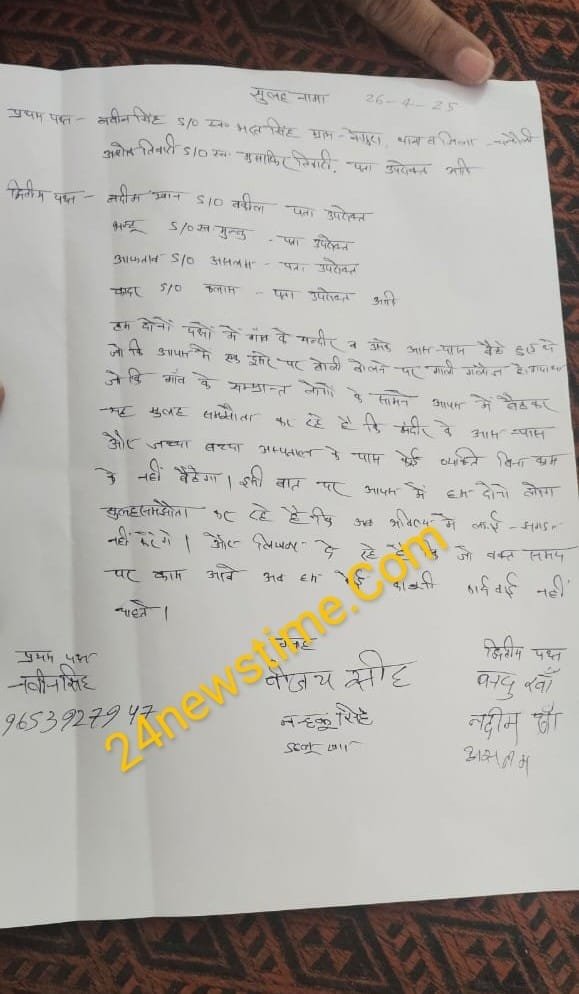 सुलह नामा 26-4-25
प्रथम पक्ष - नवीन सिंह S/O स्व० सिंह ग्राम- थाना व जिला -
अशोक तिवारी S/O स्व० तिवारी, पता उपरोक्त
द्वितीय पक्ष - नदीम खान S/O वकील पता उपरोक्त
S/O स्व मुन्नु - पता उपरोक्त
आफताब S/O असलम - पता उपरोक्त
S/O कलाम - पता उपरोक्त
हम दोनों पक्षों के गाँव के मन्दिर व उसके आस-पास बैठे हुए थे
जो कि आपस में एक दूसरे पर बोली बोलने पर गाली गलौज हो गया था
जो कि गाँव के सम्भ्रान्त लोगों के सामने आपस में बैठकर
यह सुलह समझौता कर रहे है कि मंदिर के आस पास
और जच्चा बच्चा अस्पताल के पास कोई व्यक्ति बिना काम
के नहीं बैठेगा। इसी बात पर आपस में हम दोनो लोग
सुलह समझौता कर रहे है कि अब भविष्य में कोई
नहीं करेंगे। और लिखकर दे रहे है कि जो वक्त समय
पर काम आवे अब हम कोई कानूनी कार्यवाई नहीं
चाहते।
प्रथम पक्ष
नवीन सिंह
9653927947
गवाह
सींह
नन्हकू सिंह
द्वितीय पक्ष
खाँ
नदीम खाँ
असलम
24newstime.Com